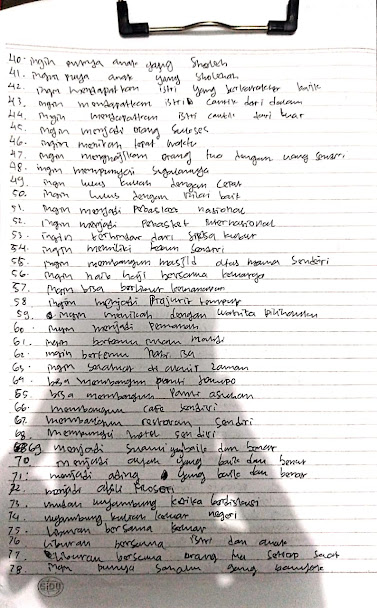 40. ingin punya anak yang Sholeh
41. ingin punya anak yang Sholehah
42. ingin mendapatkan istri yang berkarakter baik
43. ingin mendapatkan istri cantik dari dalam
44. ingin mendapatkan istri cantik dari luar
45. ingin menjadi orang Sukses
46. ingin menikah tepat waktu
47. ingin menghajikan orang tua dengan uang sendiri
48. ingin mempunyai segalanya
49. ingin lulus kuliah dengan cepat
50. ingin lulus dengan nilai baik
51. ingin menjadi Pebasket nasional
52. ingin menjadi Pebasket internasional
53. ingin terhindar dari siksa kubur
54. ingin memiliki team sendiri
55. ingin membangun masjid atas nama sendiri
56. ingin naik haji bersama keluarga
57. ingin bisa berlibur kemanapun
58 ingin menjadi Prajurit tempur
59. ingin menikah dengan wanita pilihanku
60. ingin menjadi Pemanah
61. ingin bertemu imam mahdi
62. ingin bertemu Nabi Isa
63. ingin selamat di akhir zaman
64. bisa membangun panti jompo
65. bisa membangun Panti asuhan
66. membangun cafe sendiri
67. membangun restoran sendiri
68. mempunyai hotel sendiri
69 menjadi suami yang baik dan benar
70 menjadi ayah yang baik dan benar
71. menjadi yang baik dan benar
72. menjadi ahli
73. mudah nyambung ketika berdiskusi
74. nyambung kuliah keluar negeri
75. liburan bersama keluarga
76 liburan bersama istri dan anak
77. liburan bersama orang tua setiap saat
78. ingin punya saham yang banyak